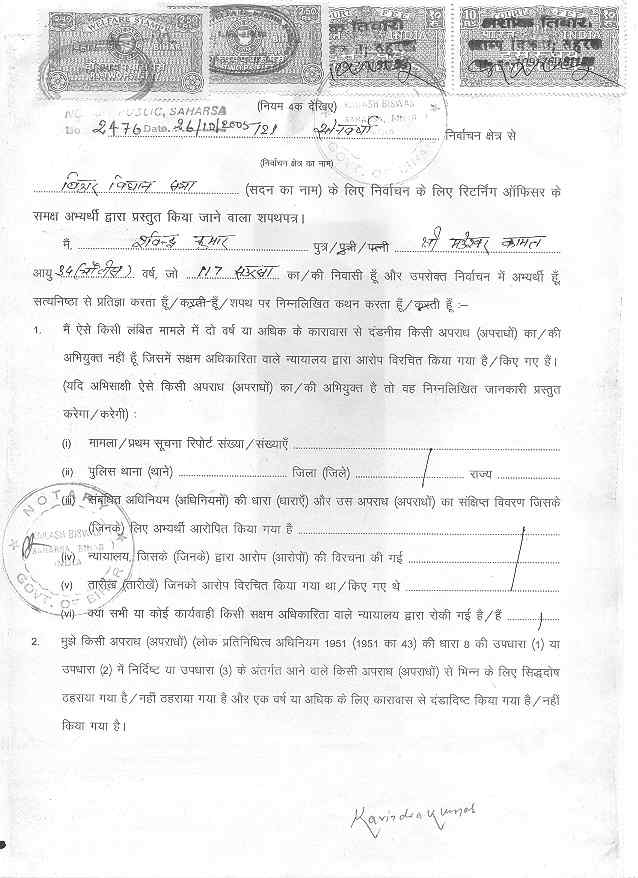 WELFARE STAMP
BIHAR
COURT FEE
(नियम 4क देखिए)
NOTARY PUBLIC, SAHARSA
No 2476 Date. 26/10/2005 निर्वाचन क्षेत्र से
(निर्वाचन क्षेत्र का नाम)
बिहार विधान सभा (सदन का नाम) के लिए निर्वाचन के लिए रिटर्निंग ऑफिसर के
समक्ष अभ्यर्थी द्वारा प्रस्तुत किया जाने वाला शपथपत्र।
मैं, कुमार पुत्र/पुत्री/पत्नी श्री कामत
आयु वर्ष, जो का/की निवासी हूँ और उपरोक्त निर्वाचन में अभ्यर्थी हूँ,
सत्यनिष्ठा से प्रतिज्ञा करता हूँ/करती हूँ/शपथ पर निम्नलिखित कथन करता हूँ/करती हूँ :–
1. मैं ऐसे किसी लंबित मामले में दो वर्ष या अधिक के कारावास से दंडनीय किसी अपराध (अपराधों) का/की
अभियुक्त नहीं हूँ जिसमें सक्षम अधिकारिता वाले न्यायालय द्वारा आरोप विरचित किया गया है/किए गए हैं।
(यदि अभिसाक्षी ऐसे किसी अपराध (अपराधों) का/की अभियुक्त है तो वह निम्नलिखित जानकारी प्रस्तुत
करेगा/करेगी) :
(i) मामला/प्रथम सूचना रिपोर्ट संख्या/संख्याएँ
(ii) पुलिस थाना (थाने) जिला (जिले) राज्य
(iii) संबंधित अधिनियम (अधिनियमों) की धारा (धाराएँ) और उस अपराध (अपराधों) का संक्षिप्त विवरण जिसके
(जिनके) लिए अभ्यर्थी आरोपित किया गया है
(iv) न्यायालय, जिसके (जिनके) द्वारा आरोप (आरोपों) की विरचना की गई
(v) तारीख (तारीखें) जिनको आरोप विरचित किया गया था/किए गए थे
(vi) क्या सभी या कोई कार्यवाही किसी सक्षम अधिकारिता वाले न्यायालय द्वारा रोकी गई है/हैं
NOTARY
KAILASH BISWAS
SAHARSA, BIHAR
INDIA
GOVT. OF BIHAR
2. मुझे किसी अपराध (अपराधों) (लोक प्रतिनिधित्व अधिनियम 1951 (1951 का 43) की धारा 8 की उपधारा (1) या
उपधारा (2) में निर्दिष्ट या उपधारा (3) के अंतर्गत आने वाले किसी अपराध (अपराधों) से भिन्न के लिए सिद्धदोष
ठहराया गया है/नहीं ठहराया गया है और एक वर्ष या अधिक के लिए कारावास से दंडादिष्ट किया गया है/नहीं
किया गया है।